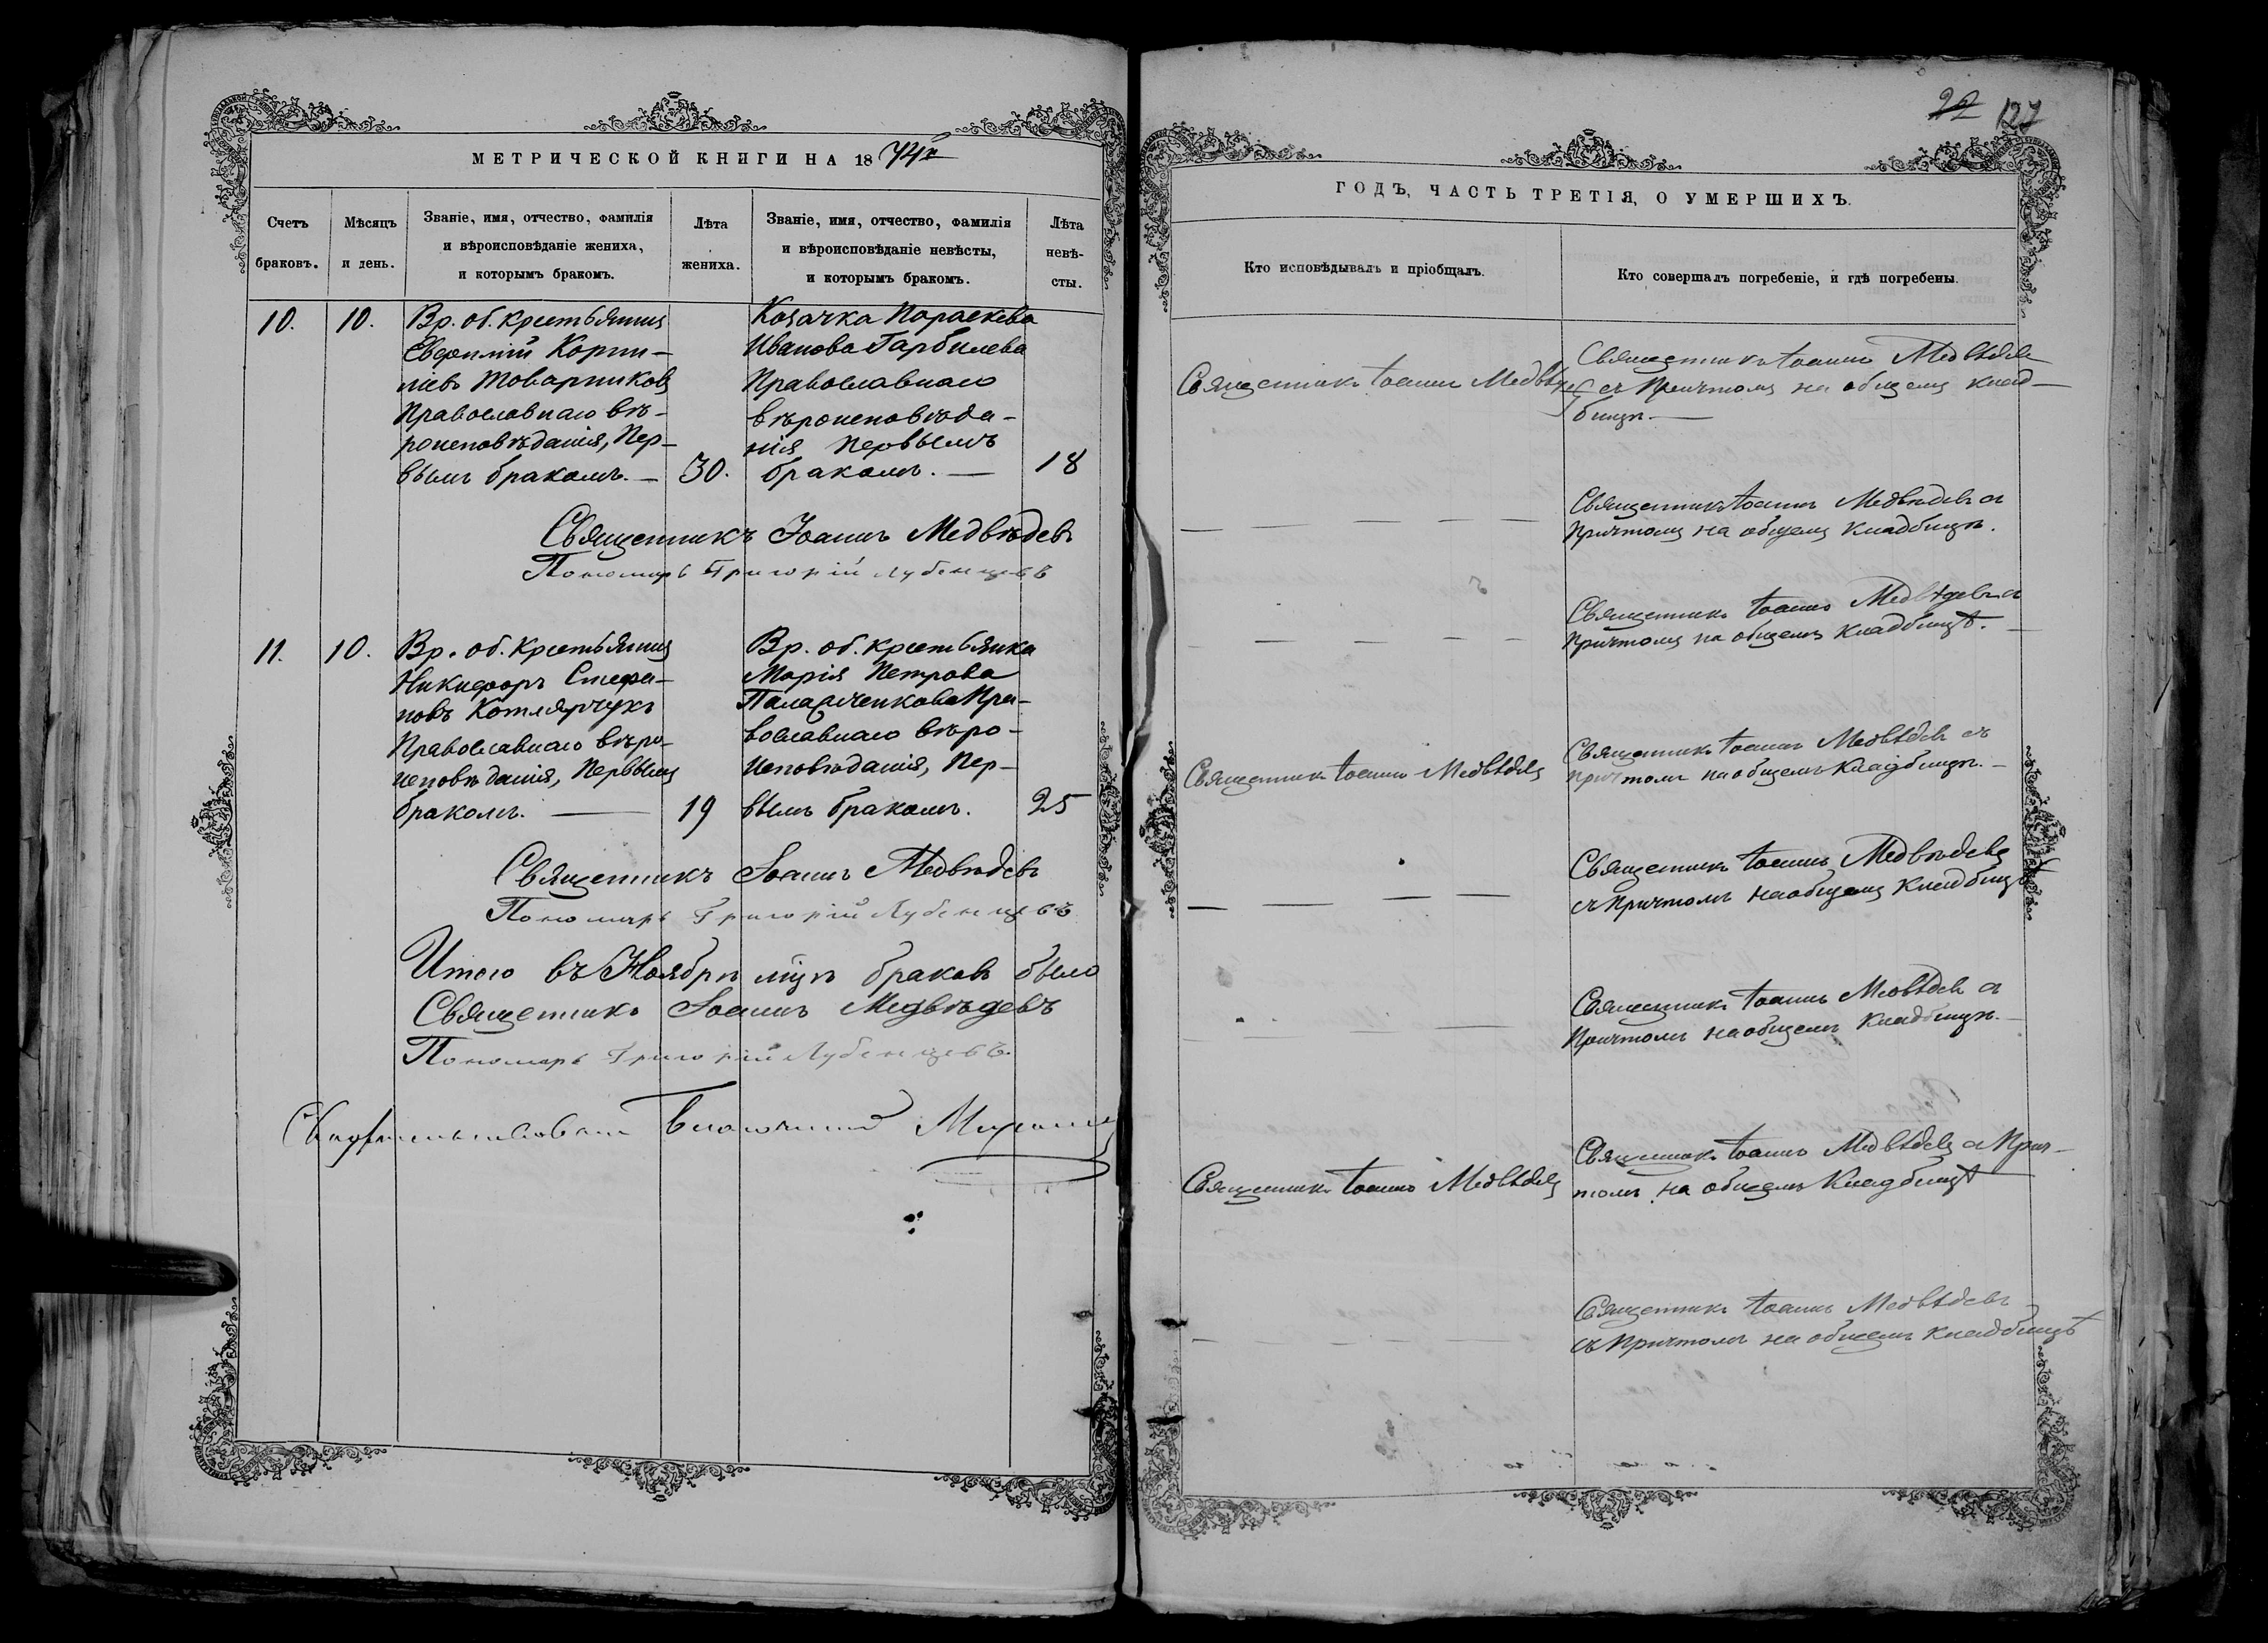 МЕТРИЧЕСКОЙ КНИГИ НА 1874й
Счетъ браковъ.
Мѣсяцъ и день.
Званіе, имя, отчество, фамилія
и вѣроисповѣданіе жениха,
и которымъ бракомъ.
Лѣта жениха.
Званіе, имя, отчество, фамилія
и вѣроисповѣданіе невѣсты,
и которымъ бракомъ.
Лѣта невѣ-
сты.
10.
10.
Вр. об. крестьянинъ
Евфимій Корни-
ліевъ Товарниковъ
Православнаго вѣ-
роисповѣданія, пер-
вымъ бракомъ. —
30.
Козачка Параскева
Иванова Гарбилева
Православнаго
вѣроисповѣда-
нія первымъ
бракомъ. —
18
Священникъ Іоаннъ Медвѣдевъ
Пономарь Григорій Лубенцевъ
11.
10.
Вр. об. крестьянинъ
Никифоръ Стефа-
новъ Котлярчукъ
Православнаго вѣро-
исповѣданія, первымъ
бракомъ. —
19
Вр. об. крестьянка
Марія Петрова
Паламченкова Пра-
вославнаго вѣро-
исповѣданія, пер-
вымъ бракомъ.
25
Священникъ Іоаннъ Медвѣдевъ
Пономарь Григорій Лубенцевъ
Итого въ Ноябрѣ мцѣ браковъ было
Священникъ Іоаннъ Медвѣдевъ
Пономарь Григорій Лубенцевъ.
Свидѣтельствовалъ Благочинный
22 127
ГОДЪ, ЧАСТЬ ТРЕТІЯ, О УМЕРШИХЪ.
Кто исповѣдывалъ и пріобщалъ.
Кто совершалъ погребеніе, и гдѣ погребены.
Священникъ Іоаннъ Медвѣдев
Священникъ Іоаннъ Медвѣдев
съ Причтомъ на общемъ клад-
бищѣ. —
— — — — —
Священникъ Іоаннъ Медвѣдевъ съ
Причтомъ на общемъ кладбищѣ.
— — — — —
Священникъ Іоаннъ Медвѣдевъ съ
Причтомъ на общемъ кладбищѣ. —
Священникъ Іоаннъ Медвѣдевъ
Священникъ Іоаннъ Медвѣдевъ съ
причтомъ на общемъ кладбищѣ. —
— — — —
Священникъ Іоаннъ Медвѣдевъ
съ причтомъ на общемъ кладбищѣ
— — — —
Священникъ Іоаннъ Медвѣдевъ съ
Причтомъ на общемъ кладбищѣ. —
Священникъ Іоаннъ Медвѣдевъ
Священникъ Іоаннъ Медвѣдевъ съ Прич-
томъ на общемъ кладбищѣ
— — — —
Священникъ Іоаннъ Медвѣдевъ
съ причтомъ на общемъ кладбищѣ